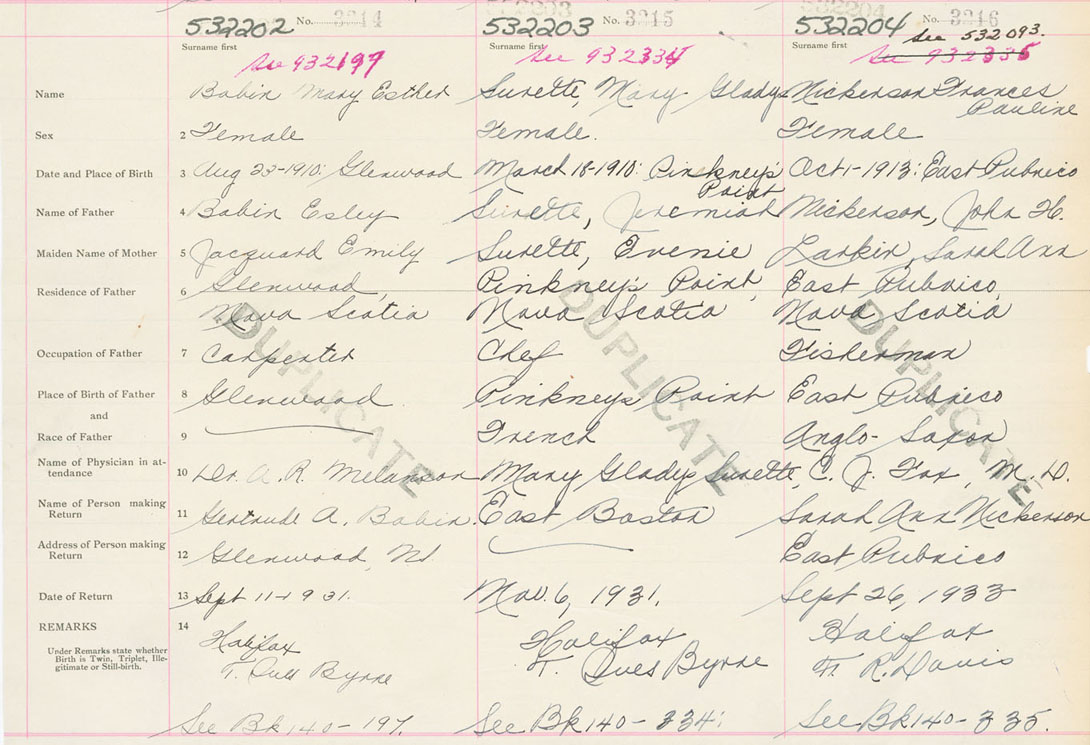 532202 No. 3214 532203 No. 3215 532204 No. 3216
See 532093.
Surname first Surname first Surname first
See 932197 See 932334 See 932335
Name Babin Mary Esther Surette, Mary Gladys Nickerson Frances
Pauline
Sex 2 Female Female. Female
Date and Place of Birth 3 Aug 22-1910: Glenwood March 18-1910: Pinkney's Oct 1-1913: East Pubnico
Point
Name of Father 4 Babin Esley Surette, Jeremiah Nickerson, John H.
Maiden Name of Mother 5 Jacquard Emily Surette, Evenie Larkin, Sarah Ann
Residence of Father 6 Glenwood, Pinkney's Point, East Pubnico,
Nova Scotia Nova Scotia Nova Scotia
DUPLICATE DUPLICATE DUPLICATE
Occupation of Father 7 Carpenter Chef Fisherman
Place of Birth of Father 8 Glenwood Pinkney's Point East Pubnico
and
Race of Father 9 French Anglo-Saxon
Name of Physician in at-
tendance 10 Dr. A. R. Melanson Mary Gladys Surette, C. J. Fox, M. D.
Name of Person making
Return 11 Gertrude A. Babin. East Boston Sarah Ann Nickerson
Address of Person making
Return 12 Glenwood, NS. East Pubnico
Date of Return 13 Sept 11-1931. Nov. 6, 1931. Sept 26, 1933
REMARKS 14 Halifax Halifax Halifax
Under Remarks state whether
Birth is Twin, Triplet, Ille-
gitimate or Still-birth.
F. Ives Byrne F. Ives Byrne R. Davis
See Bk 140-197. See Bk 140-334. See Bk 140-335.